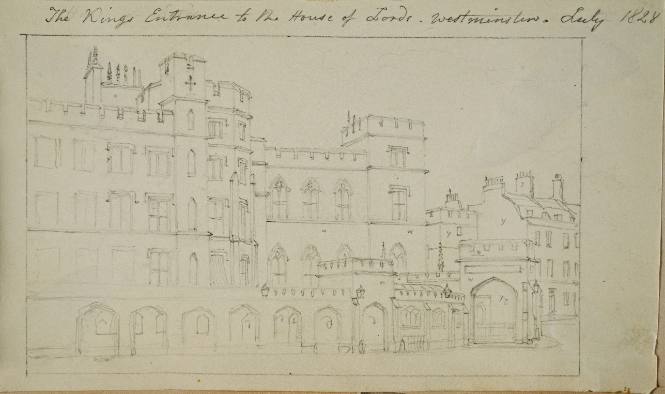 The Kings Entrance to the House of Lords. Westminster. July 1828